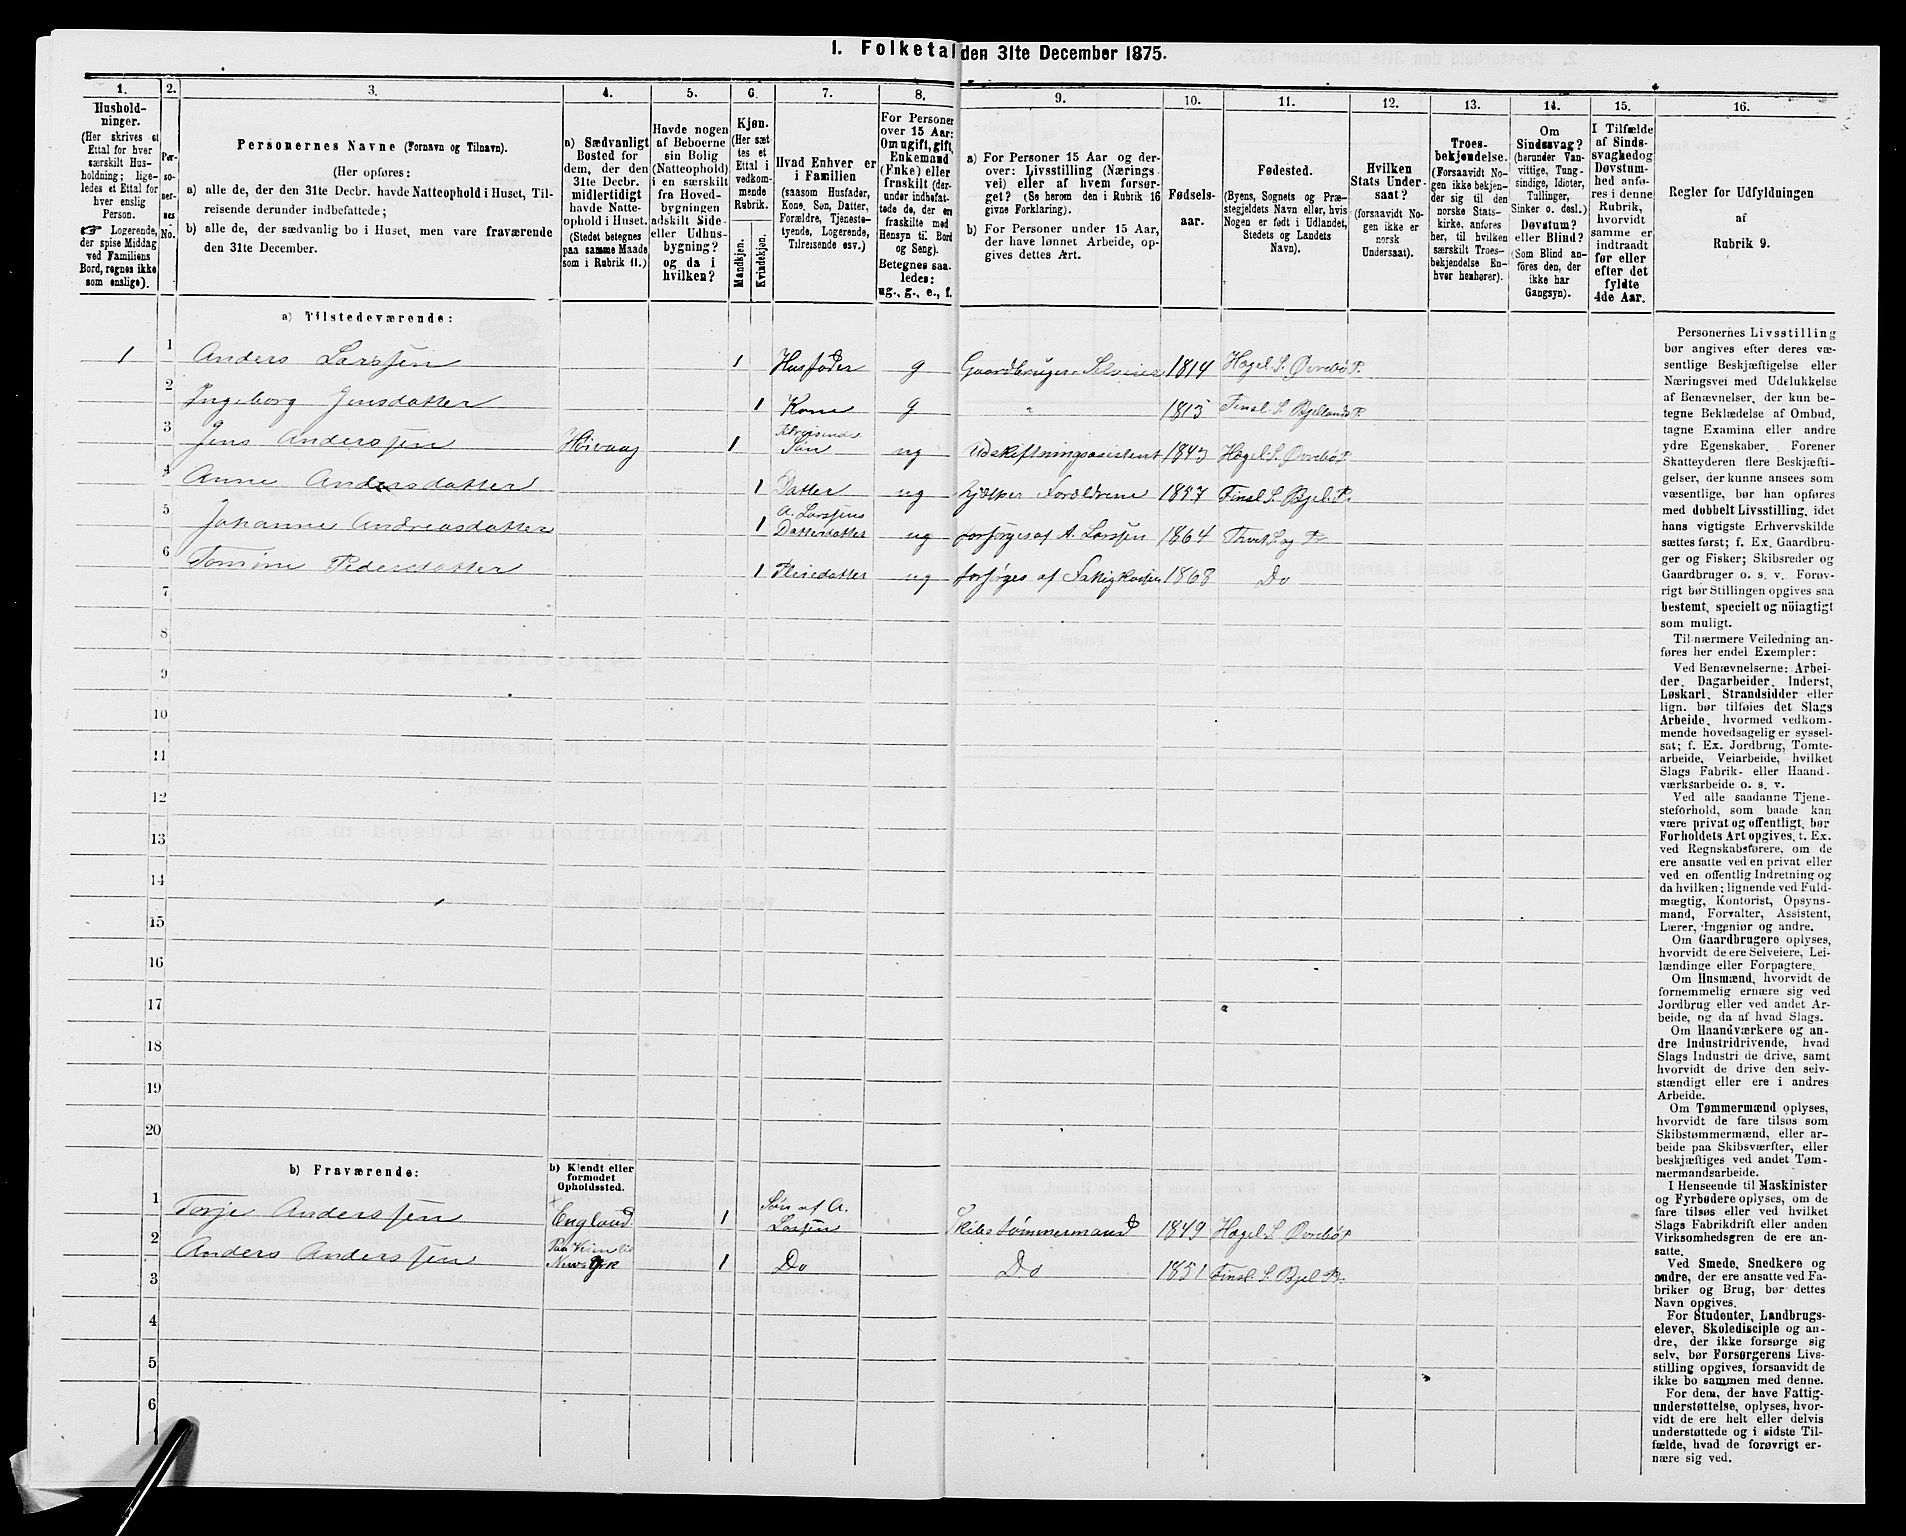 1. Folketal den 31te December 1875.
1. 2. 3. 4. 5. 6. 7. 8. 9. 10. 11. 12. 13. 14. 15. 16.
Hushold-
ninger.
(Her skrives et
Ettal for hver
særskilt Hus-
holdning; lige-
ledes et Ettal for
hver enslig
Person.
☞ Logerende,
der spise Middag
ved Familiens
Bord, regnes ikke
som enslige).
Per-
so-
ner-
nes
No.
Personernes Navne (Fornavn og Tilnavn).
(Her opføres:
a) alle de, der den 31te Decbr. havde Natteophold i Huset, Til-
reisende derunder indbefattede;
b) alle de, der sædvanlig bo i Huset, men vare fraværende
den 31te December.
a) Sædvanligt
Bosted for
dem, der den
31te Decbr.
midlertidigt
havde Natte-
ophold i Huset.
(Stedet betegnes
paa samme Maade
som i Rubrik 11.)
Havde nogen
af Beboerne
sin Bolig
(Natteophold)
i en særskilt
fra Hoved-
bygningen
adskilt Side-
eller Udhus-
bygning?
og da i
hvilken?
Kjøn.
(Her sæt-
tes et
Ettal i
vedkom-
mende
Rubrik.
Mandkjøn.
Kvindekjøn.
Hvad Enhver er
i Familien
(saasom Husfader,
Kone, Søn, Datter,
Forældre, Tjeneste-
tyende, Logerende,
Tilreisende osv.)
For Personer
over 15 Aar:
Om ugift, gift,
Enkemand
(Enke) eller
fraskilt (der-
under indbefat-
tede de, der ere
fraskilte med
Hensyn til Bord
og Seng).
Betegnes saa-
ledes:
ug., g., e., f.
a) For Personer 15 Aar og der-
over: Livsstilling (Nærings-
vei) eller af hvem forsør-
get? (Se herom den i Rubrik 16
givne Forklaring).
b) For Personer under 15 Aar,
der have lønnet Arbeide, op-
gives dettes Art.
Fødsels-
aar.
Fødested.
(Byens, Sognets og Præ-
stegjeldets Navn eller, hvis
Nogen er født i Udlandet,
Stedets og Landets
Navn).
Hvilken
Stats Under-
saat?
(forsaavidt No-
gen ikke er
norsk
Undersaat).
Troes-
bekjendelse.
(Forsaavidt No-
gen ikke bekjen-
der sig til den
norske Stats-
kirke, anføres
her, til hvilken
særskilt Troes-
bekjendelse En-
hver henhører).
Om
Sindssvag?
(herunder Van-
vittige, Tung-
sindige, Idioter,
Tullinger,
Sinker o. desl.)
Døvstum?
eller Blind?
(Som Blind an-
føres den, der
ikke har
Gangsyn).
I Tilfælde
af Sinds-
svaghed og
Døvstum-
hed anfø-
res i denne
Rubrik,
hvorvidt
samme er
indtraadt
før eller
efter det
fyldte
4de Aar.
Regler for Udfyldningen
af
Rubrik 9.
a) Tilstedeværende:
1 1 Anders Larssen 1 Husfader g Gaardbruger Selveier 1814 Hægel. S. Øvrebø P.
2 Ingeborg Jensdatter 1 Kone g " 1815 Finsl. S. Bjelland P.
3 Jens Anderssen Høivaag 1 Tilreisende Søn ug Udskiftningsasistent 1843 Hægel. S. Øvrebø P.
4 Anne Andersdatter 1 Datter ug hjælper Forældrene 1857 Finsl. S. Bjel. P.
5 Johanne Andreasdatter 1 A. Larssens Datterdatter ug forsørges af A. Larssen 1864 Tveit S. og Pr
6 Tomine Pedersdatter 1 Pleiedatter ug forsørges af Fattigkassen 1868 Do
7
8
9
10
11
12
13
14
15
16
17
18
19
20
b) Fraværende:
b) Kjendt eller
formodet
Opholdssted.
1 Torje Anderssen England 1 Søn af A. Larssen Skibstømmermand 1849 Hægel. S. Øvrebø P
2 Anders Anderssen Newyork 1 Do Do 1851 Finsl. S. Bjel. P.
3
4
5
6
Personernes Livsstilling
bør angives efter deres væ-
sentlige Beskjæftigelse eller
Næringsvei med Udelukkelse
af Benævnelser, der kun be-
tegne Beklædelse af Ombud,
tagne Examina eller andre
ydre Egenskaber. Forener
Skatteyderen flere Beskjæfti-
gelser, der kunne ansees som
væsentlige, bør han opføres
med dobbelt Livsstilling, idet
hans vigtigste Erhvervskilde
sættes først; f. Ex. Gaardbru-
ger og Fisker; Skibsreder og
Gaardbruger o. s. v. Forøv-
rigt bør Stillingen opgives saa
bestemt, specielt og nöiagtigt
som muligt.
Til nærmere Veiledning an-
føres her endel Exempler:
Ved Benævnelserne: Arbei-
der, Dagarbeider, Inderst,
Løskarl, Strandsidder eller
lign. bør tilføies det Slags
Arbeide, hvormed vedkom-
mende hovedsagelig er syssel-
sat; f. Ex. Jordbrug, Tomte-
arbeide, Veiarbeide, hvilket
Slags Fabrik- eller Haand-
værksarbeide o. s. v.
Ved alle saadanne Tjene-
steforhold, som baade kan
være privat og offentligt, bør
Forholdets Art opgives, t. Ex.
ved Regnskabsførere, om de
ere ansatte ved en privat eller
ved en offentlig Indretning og
da hvilken; lignende ved Fuld-
mægtig, Kontorist, Opsyns-
mand, Forvalter, Assistent,
Lærer, Ingeniør og andre.
Om Gaardbrugere oplyses,
hvorvidt de ere Selveiere, Lei-
lændinge eller Forpagtere.
Om Husmænd, hvorvidt de
fornemmelig ernære sig ved
Jordbrug eller ved andet Ar-
beide, og da af hvad Slags.
Om Haandværkere og an-
dre Industridrivende, hvad
Slags Industri de drive, samt
hvorvidt de drive den selv-
stændigt eller ere i andres
Arbeide.
Om Tømmermænd oplyses,
hvorvidt de fare tilsøs som
Skibstømmermænd, eller ar-
beide paa Skibsværfter, eller
beskjæftiges ved andet Tøm-
mermandsarbeide.
I Henseende til Maskinister
og Fyrbødere oplyses, om de
fare tilsøs eller ved hvilket
Slags Fabrikdrift eller anden
Virksomhedsgren de ere an-
satte.
Ved Smede, Snedkere og
andre, der ere ansatte ved Fa-
briker og Brug, bør dettes
Navn opgives.
For Studenter, Landbrugs-
elever, Skoledisciple og an-
dre, der ikke forsørge sig
selv, bør Forsørgerens Livs-
stilling opgives, forsaavidt de
ikke bo sammen med denne.
For dem, der have Fattig-
understøttelse, oplyses, hvor-
vidt de ere helt eller delvis
understøttede og i sidste Til-
fælde, hvad de forøvrigt er-
nære sig ved.